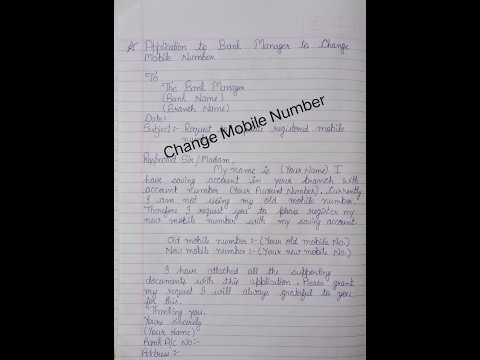 Application to Bank Manager to Change
Mobile Number
To
The Bank Manager
(Bank Name)
(Branch Name)
Date:
Subject:- Request registered mobile
Change Mobile Number
Respected Sir/Madam,
My name is (Your Name) I
have saving account in your branch with
account number (Your Account Number). Currently
I am not using my old mobile number.
Therefore I request you to please register my
new mobile number with my saving account
Old mobile number :- (Your old mobile No.)
New mobile number :- (Your new mobile No.)
I have attached all the supporting
documents with this application. Please grant
my request I will always grateful to you
for this.
Thanking you.
Yours sincerely
(Your Name)
Bank A/c No:-
Address :-